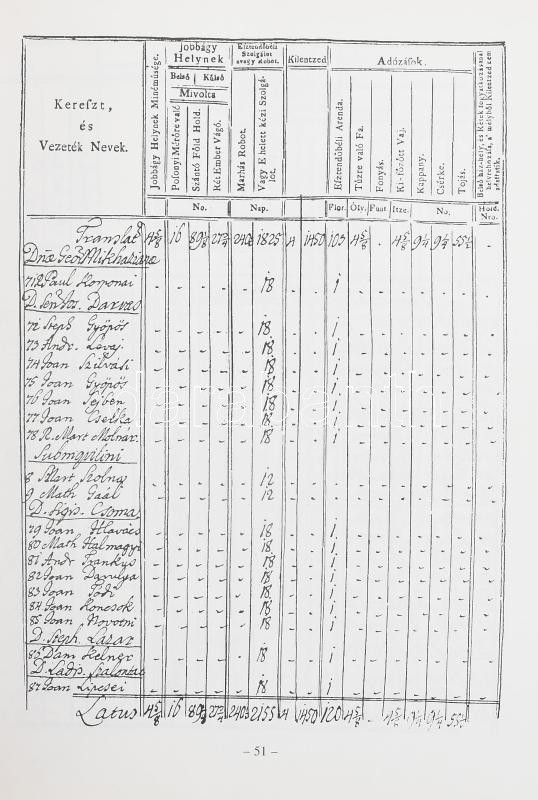 Kereszt,
és
Vezeték Nevek.
Jobbágy Helynek Minémüsége.
Jobbágy
Helynek
Belsö Külsö
Mivolta
Posonyi Méröre való
Szántó Föld Hold.
Rét Ember Vágó.
Esztendöbéli
Szolgálat
avagy Robot.
Marhás Robot.
Vagy E helett kézi Szolgálot.
Kilentzed
Adózások.
Esztendöbéli Árenda.
Tüzre való Fa.
Fonyás.
Ki-fözött Vaj.
Kappany.
Csérke.
Tojás.
No. Nap. Flor. Ölv. Punt Itze. No. Hold. Nro.
Translat 4 5/8 16 1825 4 1450 105 4 5/8 - 4 5/8 9 1/4 9 1/4 -
Paul Korponai - - - - - 18 - - 1 - - - - - - -
D. Sen. Jos. Darvas
72 Steph Gyöpös - - - - - 18 - - 1 - - - - - - -
73 Andr. Levaj - - - - - 18 - - 1 - - - - - - -
74 Joan Szilvási - - - - - 18 - - 1 - - - - - - -
75 Joan Gyöpös - - - - - 18 - - 1 - - - - - - -
76 Joan Sejben - - - - - 18 - - 1 - - - - - - -
77 Joan Cselka - - - - - 18 - - 1 - - - - - - -
78 R. Mart Molnár - - - - - 18 - - 1 - - - - - - -
Subinqvilini
8 Mart Szolnay - - - - - 12 - - - - - - - - - -
9 Math Gaál - - - - - 12 - - - - - - - - - -
D. Sigis. Csoma
79 Joan Hlavács - - - - - 18 - - 1 - - - - - - -
80 Math Halmagyi - - - - - 18 - - 1 - - - - - - -
81 Andr Frankys - - - - - 18 - - 1 - - - - - - -
82 Joan Darulya - - - - - 18 - - 1 - - - - - - -
83 Joan Fodi - - - - - 18 - - 1 - - - - - - -
84 Joan Koncsok - - - - - 18 - - 1 - - - - - - -
85 Joan Novotni - - - - - 18 - - 1 - - - - - - -
D. Steph. Lazar
86 Dam Kelner - - - - - 18 - - 1 - - - - - - -
D. Ladis. Szalontai
87 Joan Lipcsei - - - - - 18 - - 1 - - - - - - -
Latus 4 5/8 16 2403 2155 4 1450 120 4 5/8 - 4 5/8 9 1/4 9 1/4
- 51 -